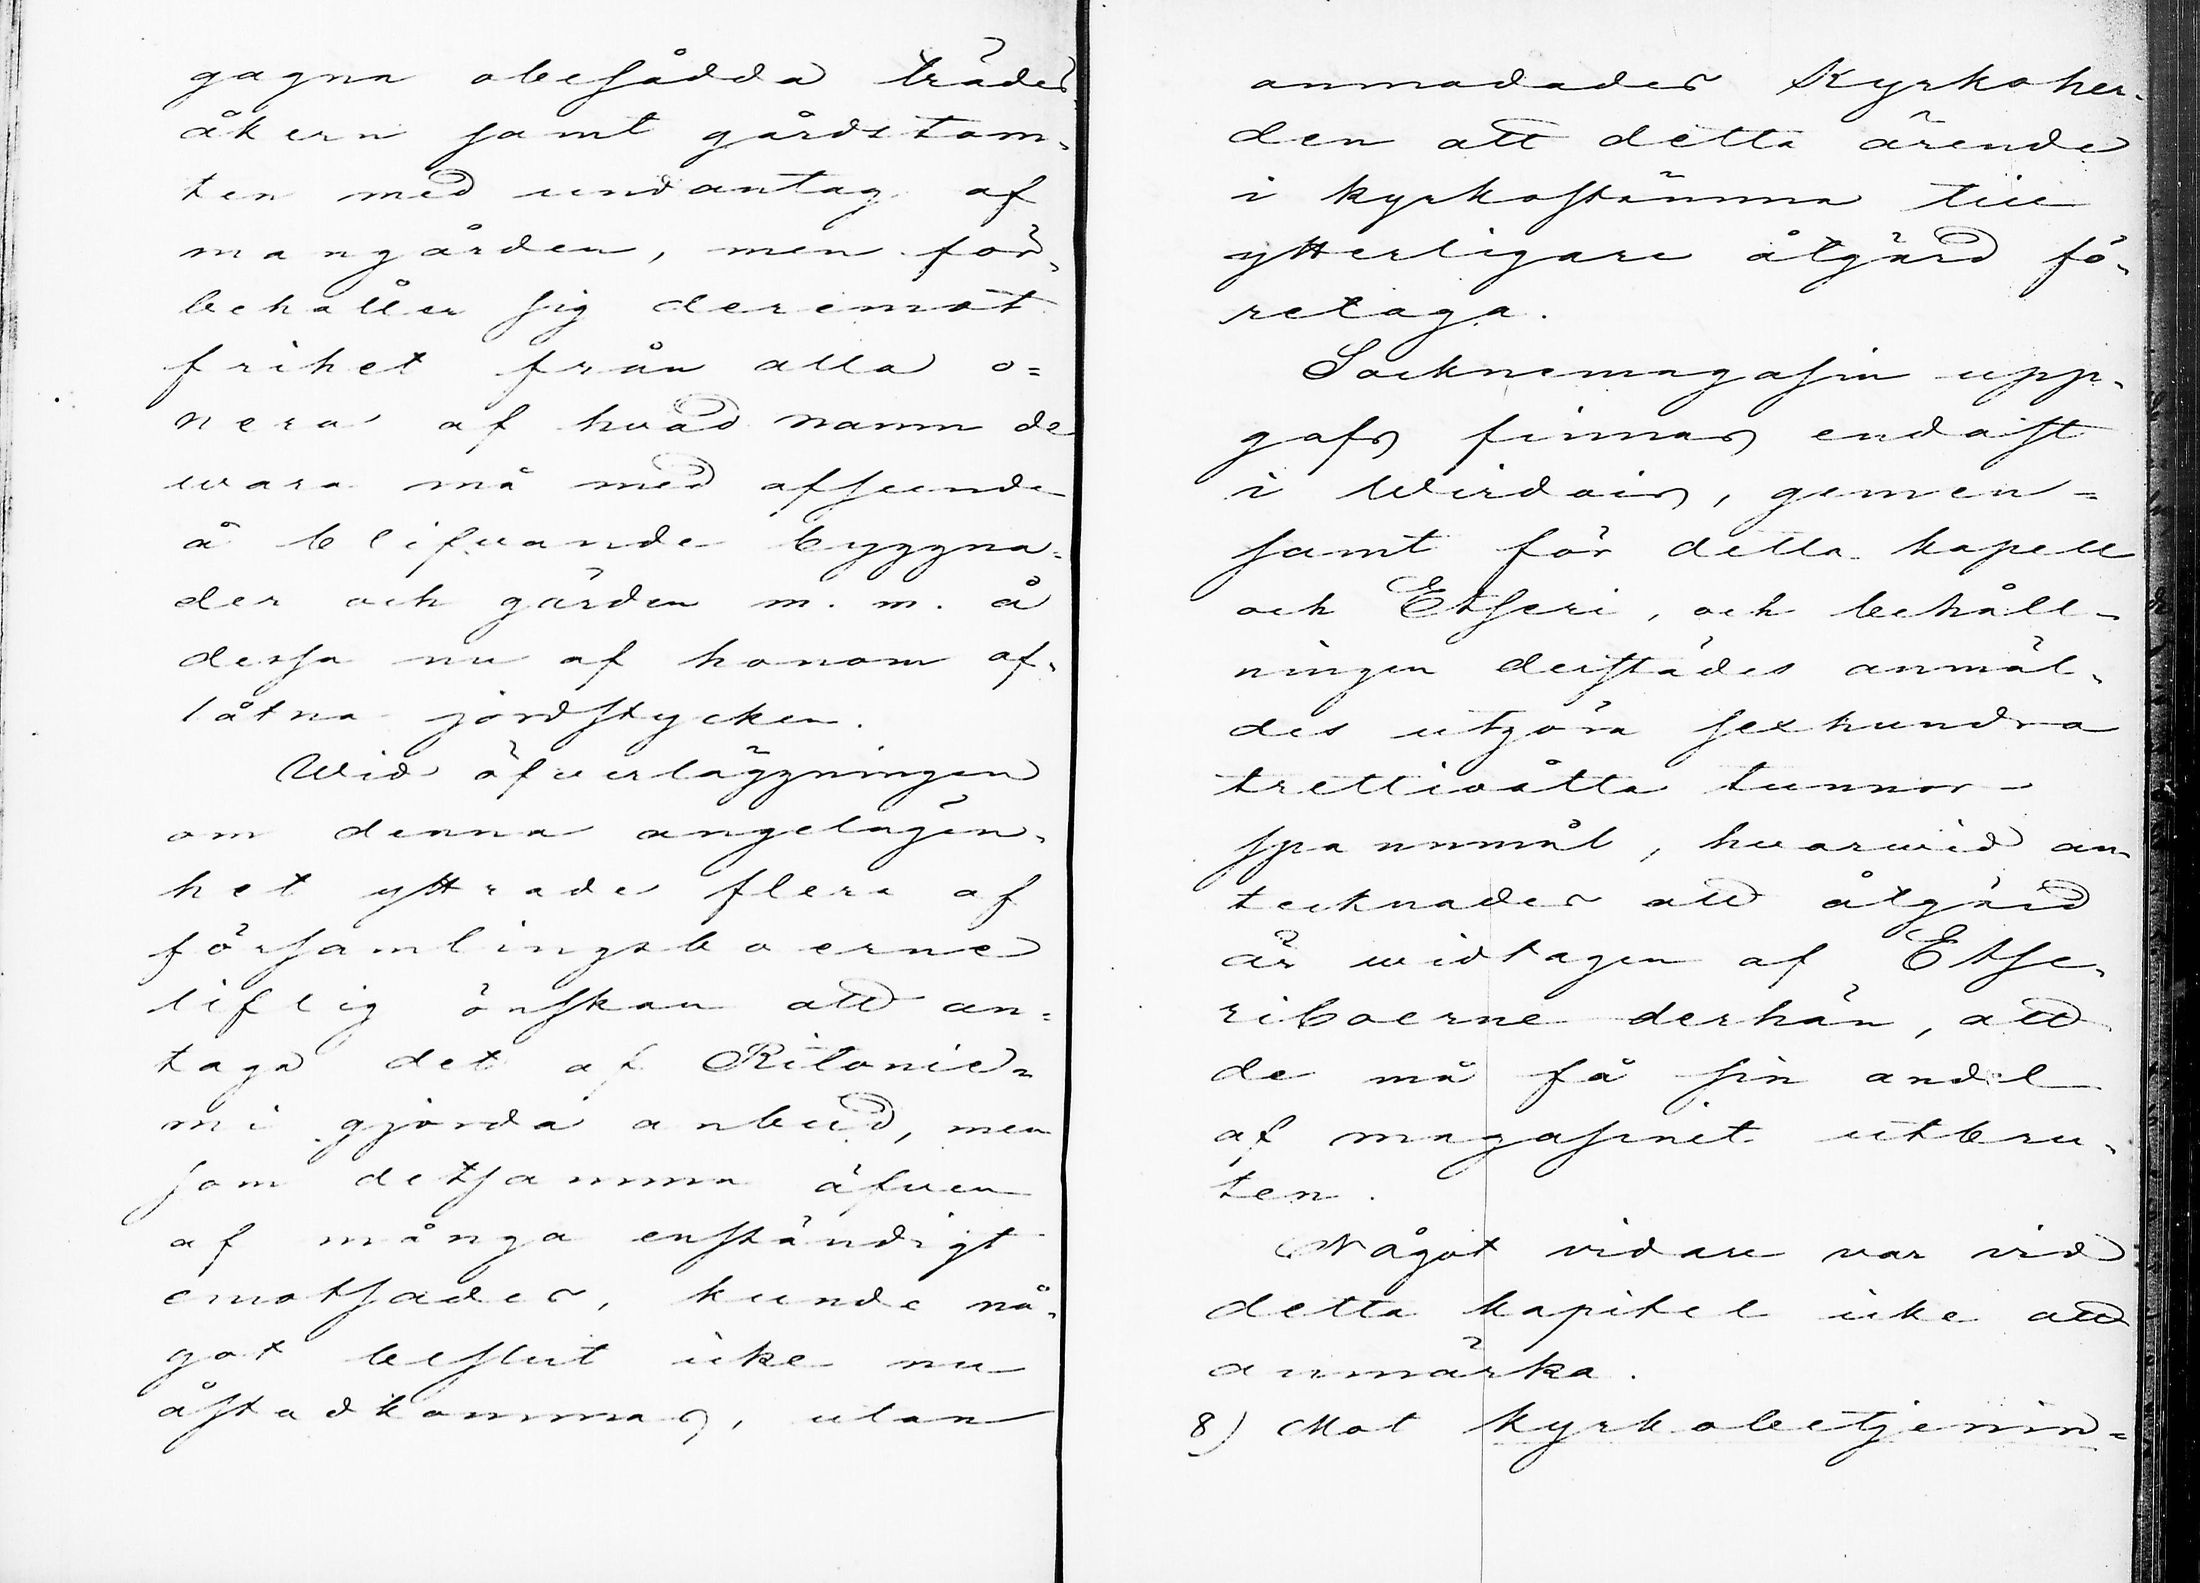 gagna obesådda trädes
åkern samt gårdstom-
ten med undantag af
mangården, men för-
behåller sig deremot
frihet från alla o=
nera af hvad namn de
wara må med afseende
å blifvande byggna-
der och gärden m. m. å
dessa nu af honom af-
låtna jordstycken.
Wid öfverläggningen
om denna angelägen-
het yttrade flera af
församlingsboerne
liflig önskan att an=
taga det af Ritonie-
mi gjorda anbud, men
som detsamma äfven
af många enständigt
emotsades, kunde nå-
got beslut icke nu
åstadkommas, utan
anmodades Kyrkoher-
den att detta ärende
i kyrkostämma till
ytterligare åtgärd fö-
retaga.
Socknemagasin upp-
gafs finnas endast
i Wirdois, gemen=
samt för detta kapell
och Etseri, och behåll-
ningen derstädes anmäl-
des utgöra sexhundra
trettioåtta tunnor
spannmål, hvarwid an
tecknades att åtgärd
är widtagen af Etse-
riboerne derhän, att
de må få sin andel
af magasinet utbru-
ten.
Något vidare var vid
detta kapitel icke att
anmärka.
8) Mot kyrkobetjenin=